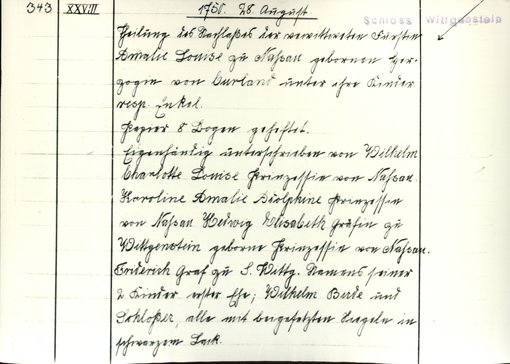 343 XXVII 1750. 28. August. Schloss Wittgenstein
Theilung des Nachlaßes der verwittweten Fürstin
Amalie Louise zu Naßau gebornen Her-
zogin von Curland unter ihre Kinder
resp. Enkel.
Papier 8 Bogen geheftet.
Eigenhändig unterschrieben von Wilhelm
Charlotte Louise Prinzessin von Naßau.
Karoline Amalie Adolphine Prinzessin
von Naßau Hedwig Elisabeth Gräfin zu
Wittgenstein geborne Prinzessin von Naßau.
Friderich Graf zu S. Wittg. Namens seiner
2 Kinder erster Ehe; Wilhelm und
Schloßer, alle mit beigesetzten Siegeln in
schwarzem Lack.